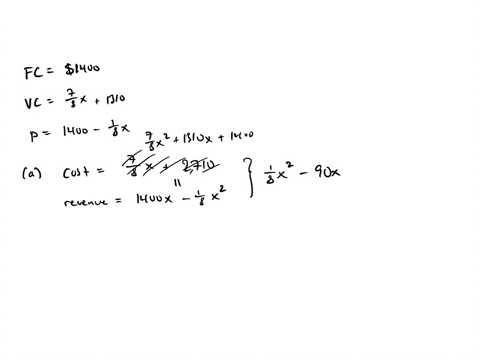 FC = $1400
VC = 7/8 x + 1310
P = 1400 - 1/8 x
7/8 x² + 1310x + 1400
(a) cost = 7/8 x + 2710
revenue = 1400x - 1/8 x² } 1/8 x² - 90x